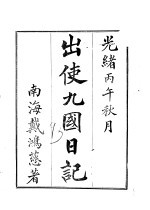 光緒丙午秋月
出使九國日記
南海戴鴻慈著